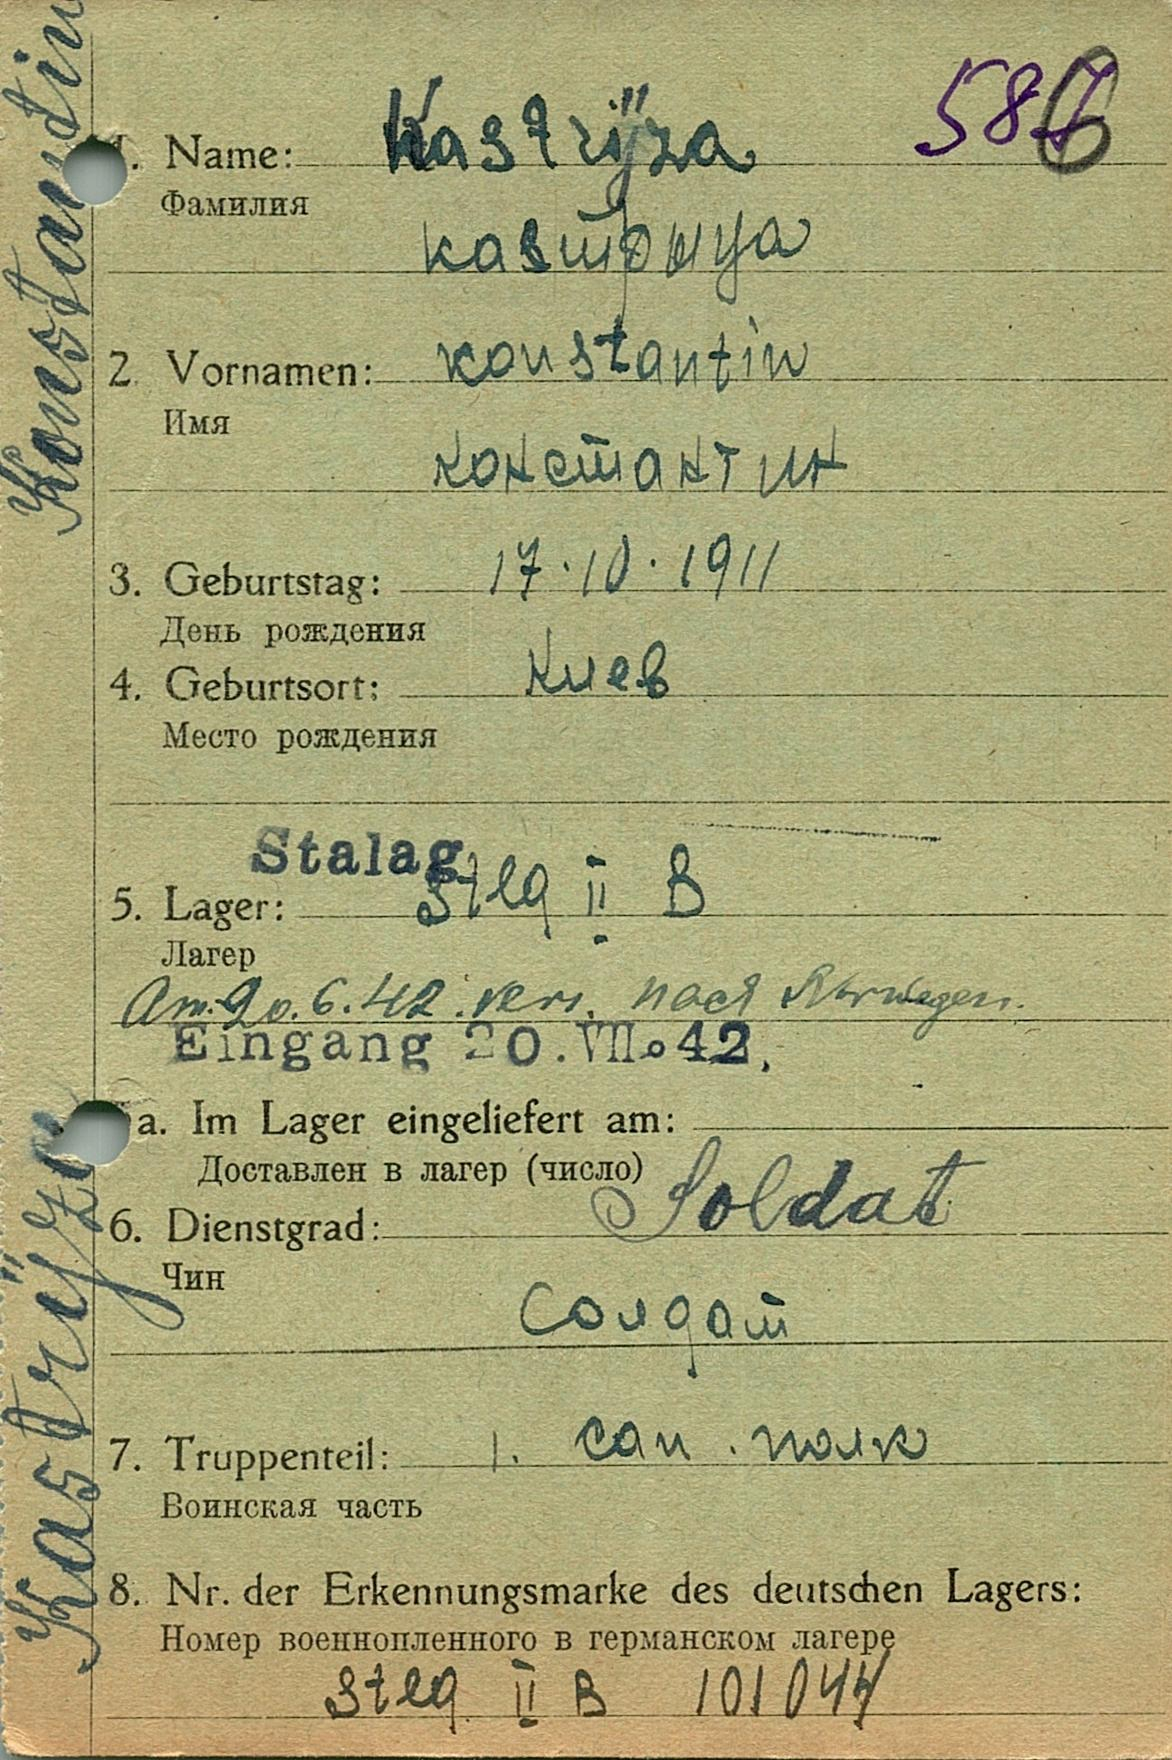 Konstantin
Kastrÿza
586
1. Name: Kastrÿza
Фамилия
каsтрыца
2. Vornamen: konstantin
Имя
константин
3. Geburtstag: 17.10.1911
День рождения
4. Geburtsort: Киев
Место рождения
Stalag
5. Lager: Stlg II B
Лагер
Am 20.6.42 vers. nach Norwegen.
Eingang 20.VII.42.
a. Im Lager eingeliefert am:
Доставлен в лагер (число)
6. Dienstgrad: Soldat
Чин
Солдат
7. Truppenteil: 1. сап. полк
Воинская часть
8. Nr. der Erkennungsmarke des deutschen Lagers:
Номер военнопленного в германском лагере
Stlg II B 101044